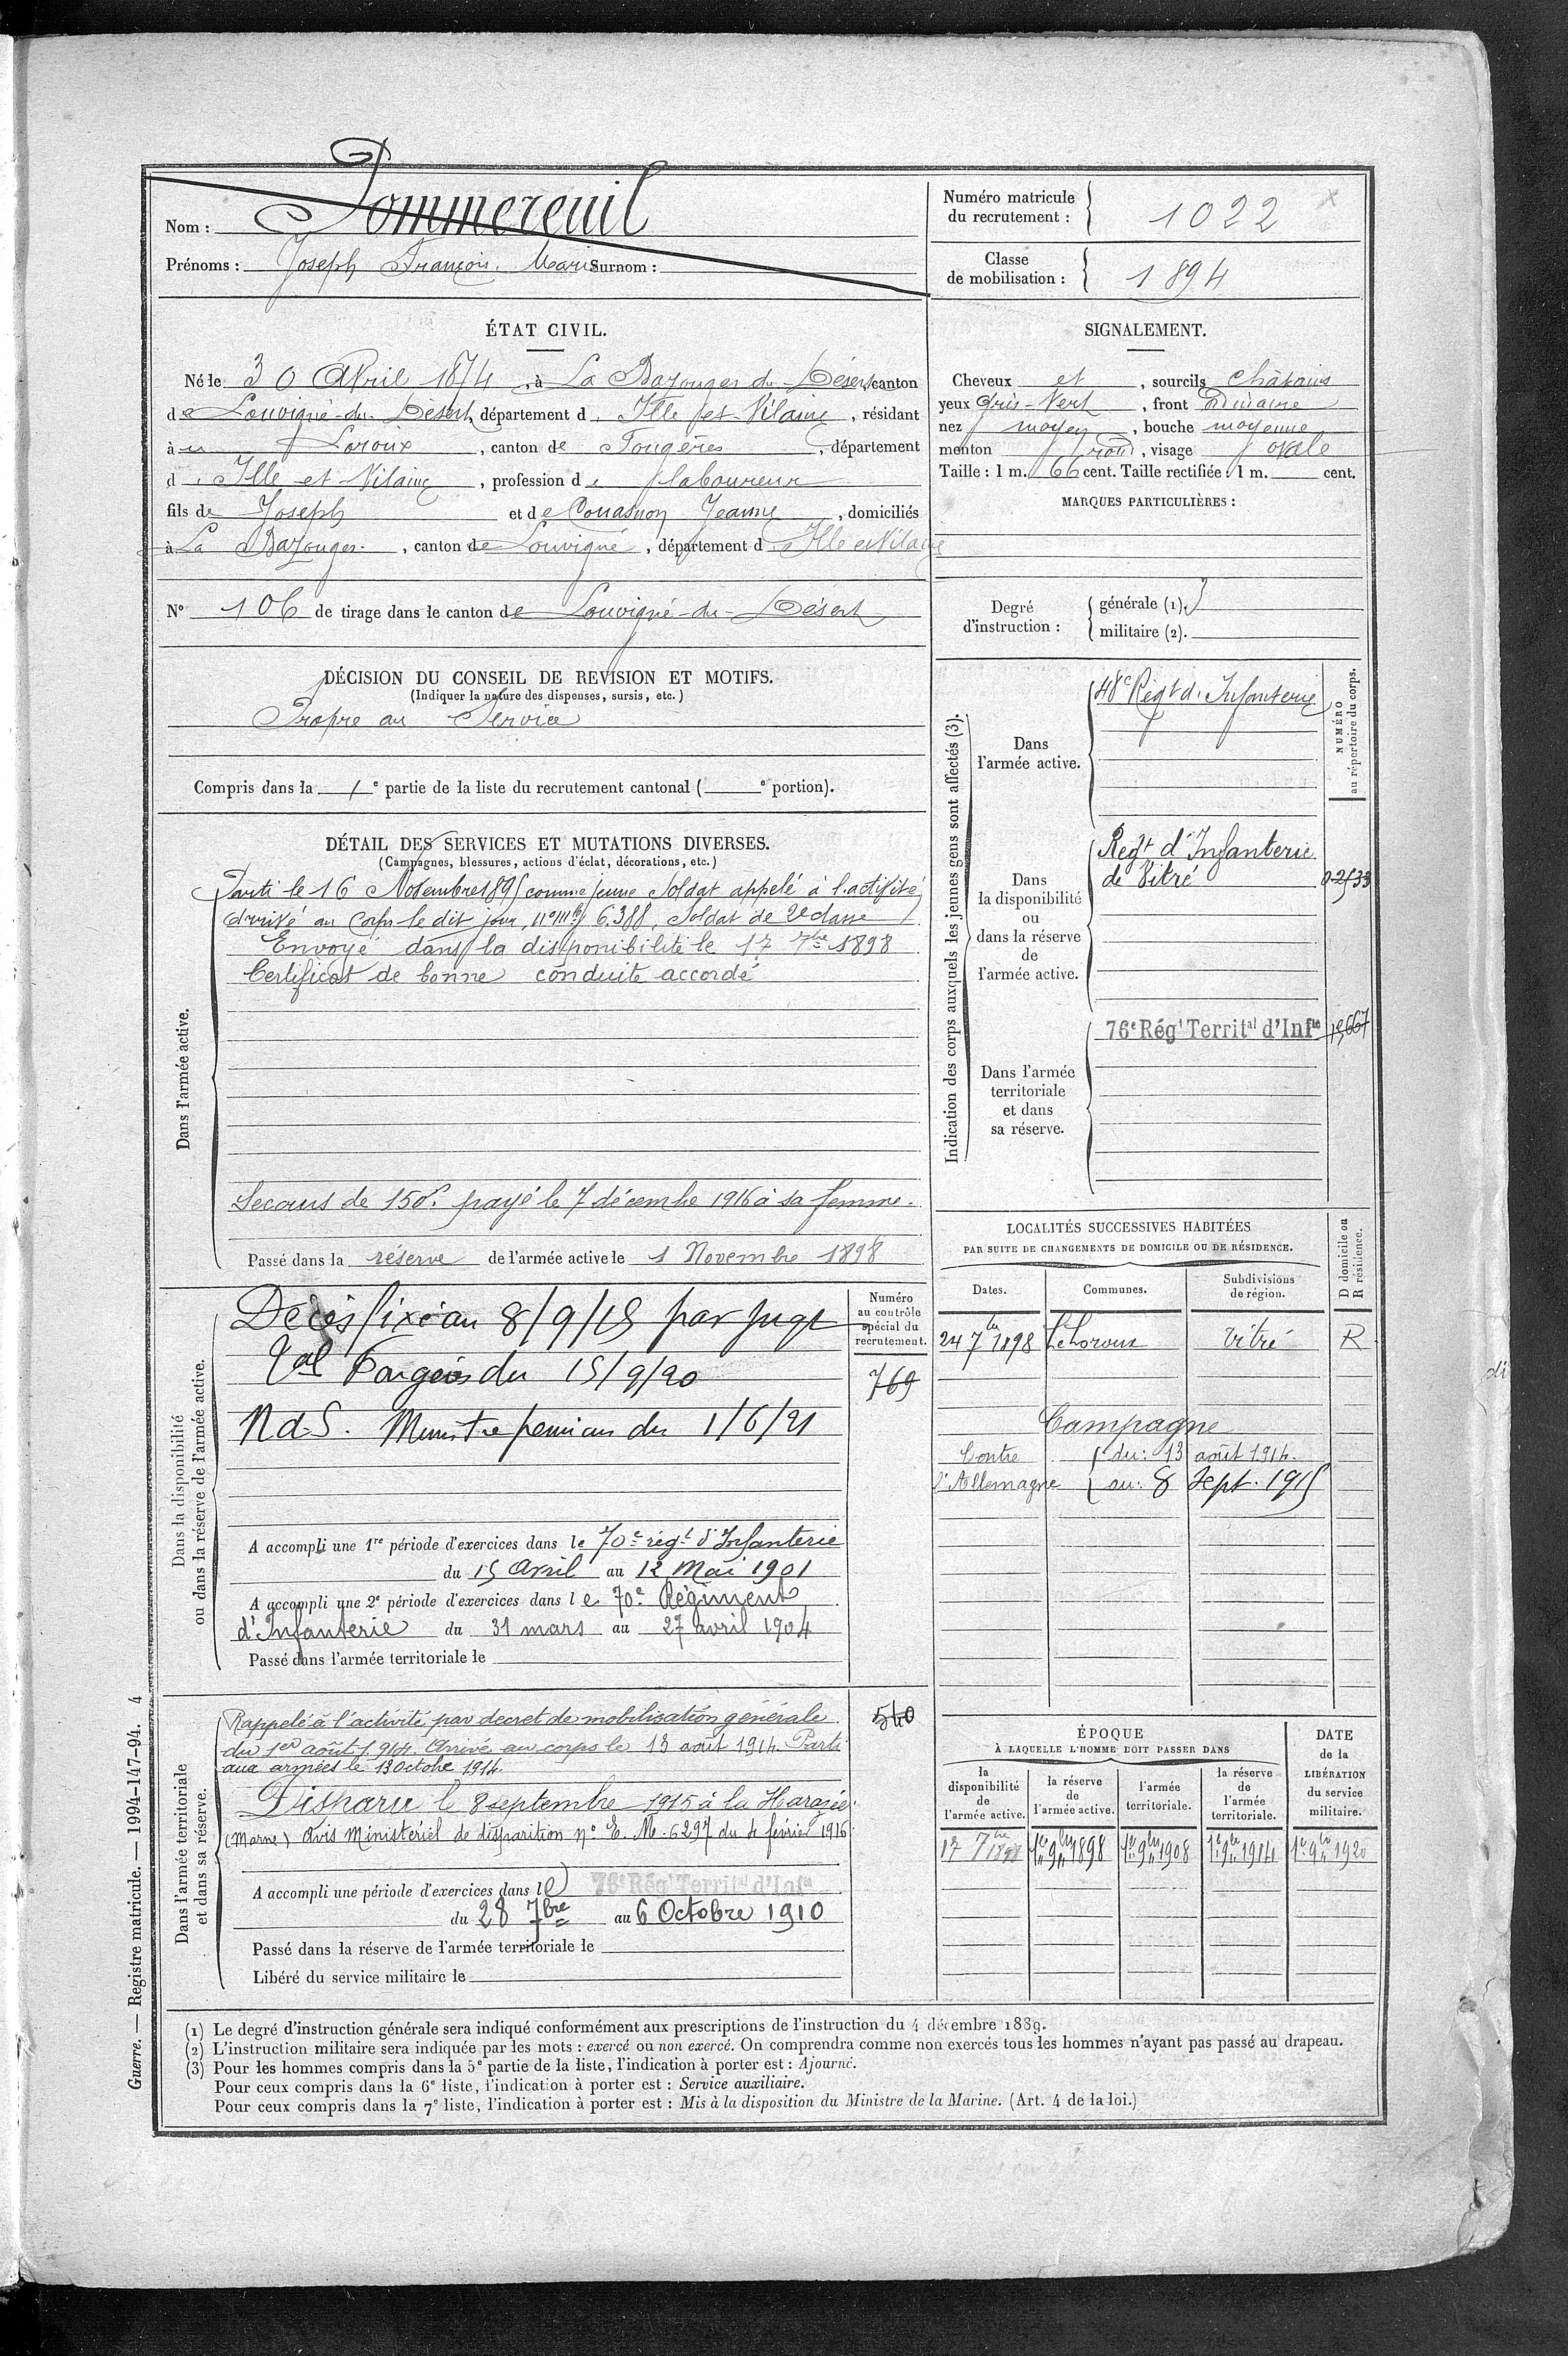 Nom : Pommereuil
Prénoms : Joseph François Marie Surnom :
Numéro matricule
du recrutement : 1022
Classe
de mobilisation : 1894
ÉTAT CIVIL.
Né le 30 Avril 1874, à La Bazouges du Désert, canton
de Louvigné-du-Désert, département d'Ille et-Vilaine, résidant
à Loroux, canton de Fougères, département
d'Ille et Vilaine, profession de laboureur
fils de Joseph et de Couasnon Jeanne, domiciliés
à La Bazouges, canton de Louvigné, département d'Ille et Vilaine
N° 106 de tirage dans le canton de Louvigné-du-Désert
SIGNALEMENT.
Cheveux et, sourcils châtains
yeux Gris-Vert, front ordinaire
nez moyen, bouche moyenne
menton rond, visage ovale
Taille : 1 m. 66 cent. Taille rectifiée : 1 m. cent.
MARQUES PARTICULIÈRES :
Degré
d'instruction :
générale (1). 3
militaire (2).
DÉCISION DU CONSEIL DE REVISION ET MOTIFS.
(Indiquer la nature des dispenses, sursis, etc.)
Propre au Service
Compris dans la 1e partie de la liste du recrutement cantonal ( e portion).
DÉTAIL DES SERVICES ET MUTATIONS DIVERSES.
(Campagnes, blessures, actions d'éclat, décorations, etc.)
Dans l'armée active.
Parti le 16 Novembre 1895 comme jeune Soldat appelé à l'activité
Arrivé au Corps le dit jour, n° mle 6.388, Soldat de 2e classe
Envoyé dans la disponibilité le 17 7bre 1898
Certificat de bonne conduite accordé
Secours de 150f. payé le 7 décembre 1916 à sa femme.
Passé dans la réserve de l'armée active le 1 Novembre 1898
Indication des corps auxquels les jeunes gens sont affectés (3).
NUMÉRO
au répertoire du corps.
Dans
l'armée active.
48e Régt d'Infanterie
Dans
la disponibilité
ou
dans la réserve
de
l'armée active.
Regt d'Infanterie
de Vitré
Dans l'armée
territoriale
et dans
sa réserve.
76e Régt Territal d'Infie
LOCALITÉS SUCCESSIVES HABITÉES
PAR SUITE DE CHANGEMENTS DE DOMICILE OU DE RÉSIDENCE.
Dates. Communes. Subdivisions
de région. D domicile ou
R résidence.
24 7bre 1898 Le Loroux Vitré R
Campagne
Contre du : 13 août 1914.
l'Allemagne au : 8 Sept. 1915
Dans la disponibilité
ou dans la réserve de l'armée active.
Numéro
au contrôle
spécial du
recrutement.
769
Décès fixé au 8/9/15 par jugt
Val Fougères du 15/9/20
Nd.S. Ministre pension du 1/6/21
A accompli une 1re période d'exercices dans le 70e régt d'Infanterie
du 15 Avril au 12 Mai 1901
A accompli une 2e période d'exercices dans le 70e Régiment
d'Infanterie du 31 mars au 27 avril 1904
Passé dans l'armée territoriale le
Dans l'armée territoriale
et dans sa réserve.
540
Rappelé à l'activité par décret de mobilisation générale
du 1er août 1914. Arrivé au corps le 13 août 1914. Parti
aux armées le 13 octobre 1914.
Disparu le 8 septembre 1915 à la Harazée
(Marne) avis Ministériel de disparition n° E. M. 6297 du 4 février 1916
A accompli une période d'exercices dans le 76e Régt Territal d'Infie
du 28 7bre au 6 Octobre 1910
Passé dans la réserve de l'armée territoriale le
Libéré du service militaire le
ÉPOQUE
À LAQUELLE L'HOMME DOIT PASSER DANS
la
disponibilité
de
l'armée active.
la réserve
de
l'armée active.
l'armée
territoriale.
la réserve
de
l'armée
territoriale.
DATE
de la
LIBÉRATION
du service
militaire.
17 7bre 1898 1er 9bre 1898 1er 9bre 1908 1er 9bre 1914 1er 9bre 1920
(1) Le degré d'instruction générale sera indiqué conformément aux prescriptions de l'instruction du 4 décembre 1889.
(2) L'instruction militaire sera indiquée par les mots : exercé ou non exercé. On comprendra comme non exercés tous les hommes n'ayant pas passé au drapeau.
(3) Pour les hommes compris dans la 5e partie de la liste, l'indication à porter est : Ajourné.
Pour ceux compris dans la 6e liste, l'indication à porter est : Service auxiliaire.
Pour ceux compris dans la 7e liste, l'indication à porter est : Mis à la disposition du Ministre de la Marine. (Art. 4 de la loi.)
Guerre. — Registre matricule. — 1994-147-94. 4